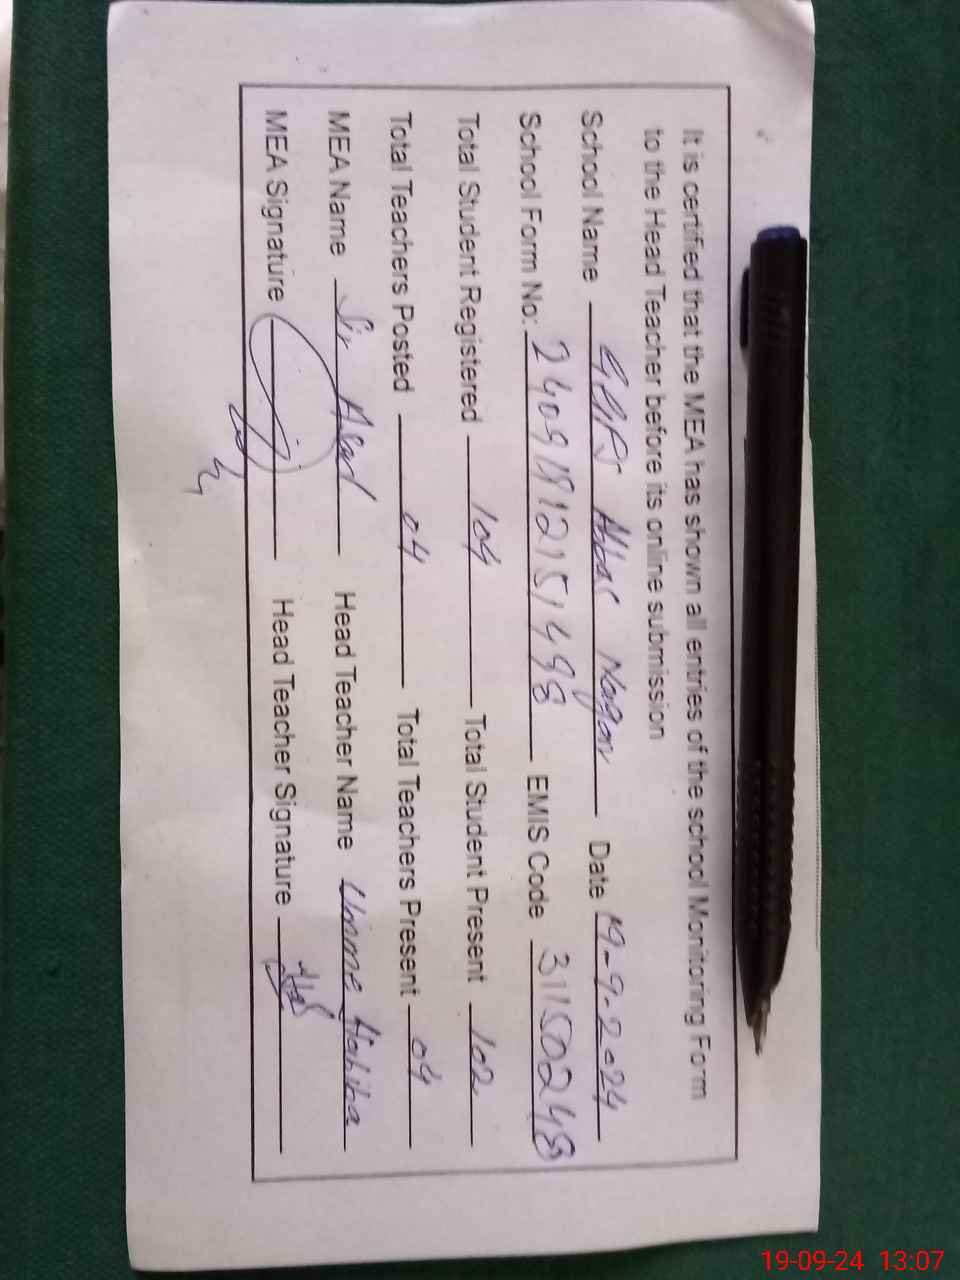 It is certified that the MEA has shown all entries of the school Monitoring Form
to the Head Teacher before its online submission
School Name Abbas Nagar Date 19-9-2024
School Form No: EMIS Code 31150248
Total Student Registered 104 Total Student Present 102
Total Teachers Posted 04 Total Teachers Present 04
MEA Name Sir Asad Head Teacher Name Umme Habiba
MEA Signature Head Teacher Signature
19-09-24 13:07